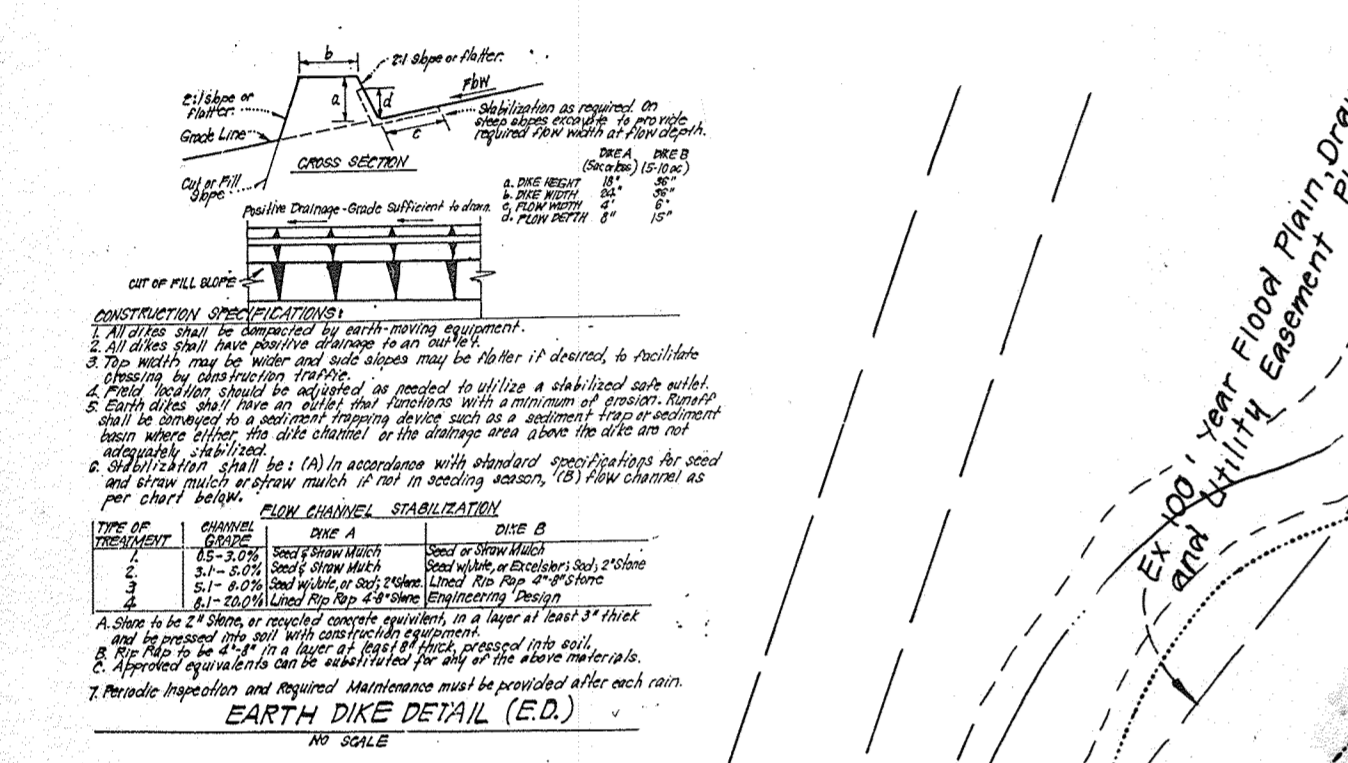 b
2:1 slope or flatter.
Flow
2:1 slope or
flatter.
a
d
c
Stabilization as required. On
steep slopes excavate to provide
required flow width at flow depth.
Grade Line
CROSS SECTION
Cut or Fill
Slope
DIKE A DIKE B
(5ac or less) (5-10 ac)
a. DIKE HEIGHT 18" 36"
b. DIKE WIDTH 24" 36"
c. FLOW WIDTH 4' 6'
d. FLOW DEPTH 8" 15"
Positive Drainage-Grade Sufficient to drain.
CUT OF FILL SLOPE
CONSTRUCTION SPECIFICATIONS:
1. All dikes shall be compacted by earth-moving equipment.
2. All dikes shall have positive drainage to an outlet.
3. Top width may be wider and side slopes may be flatter if desired, to facilitate
crossing by construction traffic.
4. Field location should be adjusted as needed to utilize a stabilized safe outlet.
5. Earth dikes shall have an outlet that functions with a minimum of erosion. Runoff
shall be conveyed to a sediment trapping device such as a sediment trap or sediment
basin where either the dike channel or the drainage area above the dike are not
adequately stabilized.
6. Stabilization shall be: (A) In accordance with standard specifications for seed
and straw mulch or straw mulch if not in seeding season, (B) flow channel as
per chart below.
FLOW CHANNEL STABILIZATION
TYPE OF TREATMENT CHANNEL GRADE DIKE A DIKE B
1. 0.5-3.0% Seed & Straw Mulch Seed or Straw Mulch
2. 3.1-5.0% Seed & Straw Mulch Seed w/Jute, or Excelsior; Sod; 2" Stone
3 5.1-8.0% Seed w/Jute, or Sod; 2" Stone. Lined Rip Rap 4"-8" Stone
4. 8.1-20.0% Lined Rip Rap 4"-8" Stone Engineering Design
A. Stone to be 2" Stone, or recycled concrete equivilent, in a layer at least 3" thick
and be pressed into soil with construction equipment.
B. Rip Rap to be 4"-8" in a layer at least 8" thick, pressed into soil.
C. Approved equivalents can be substituted for any of the above materials.
7. Periodic Inspection and Required Maintenance must be provided after each rain.
EARTH DIKE DETAIL (E.D.)
NO SCALE
EX 100' Year Flood Plain, Dra
and Utility Easement